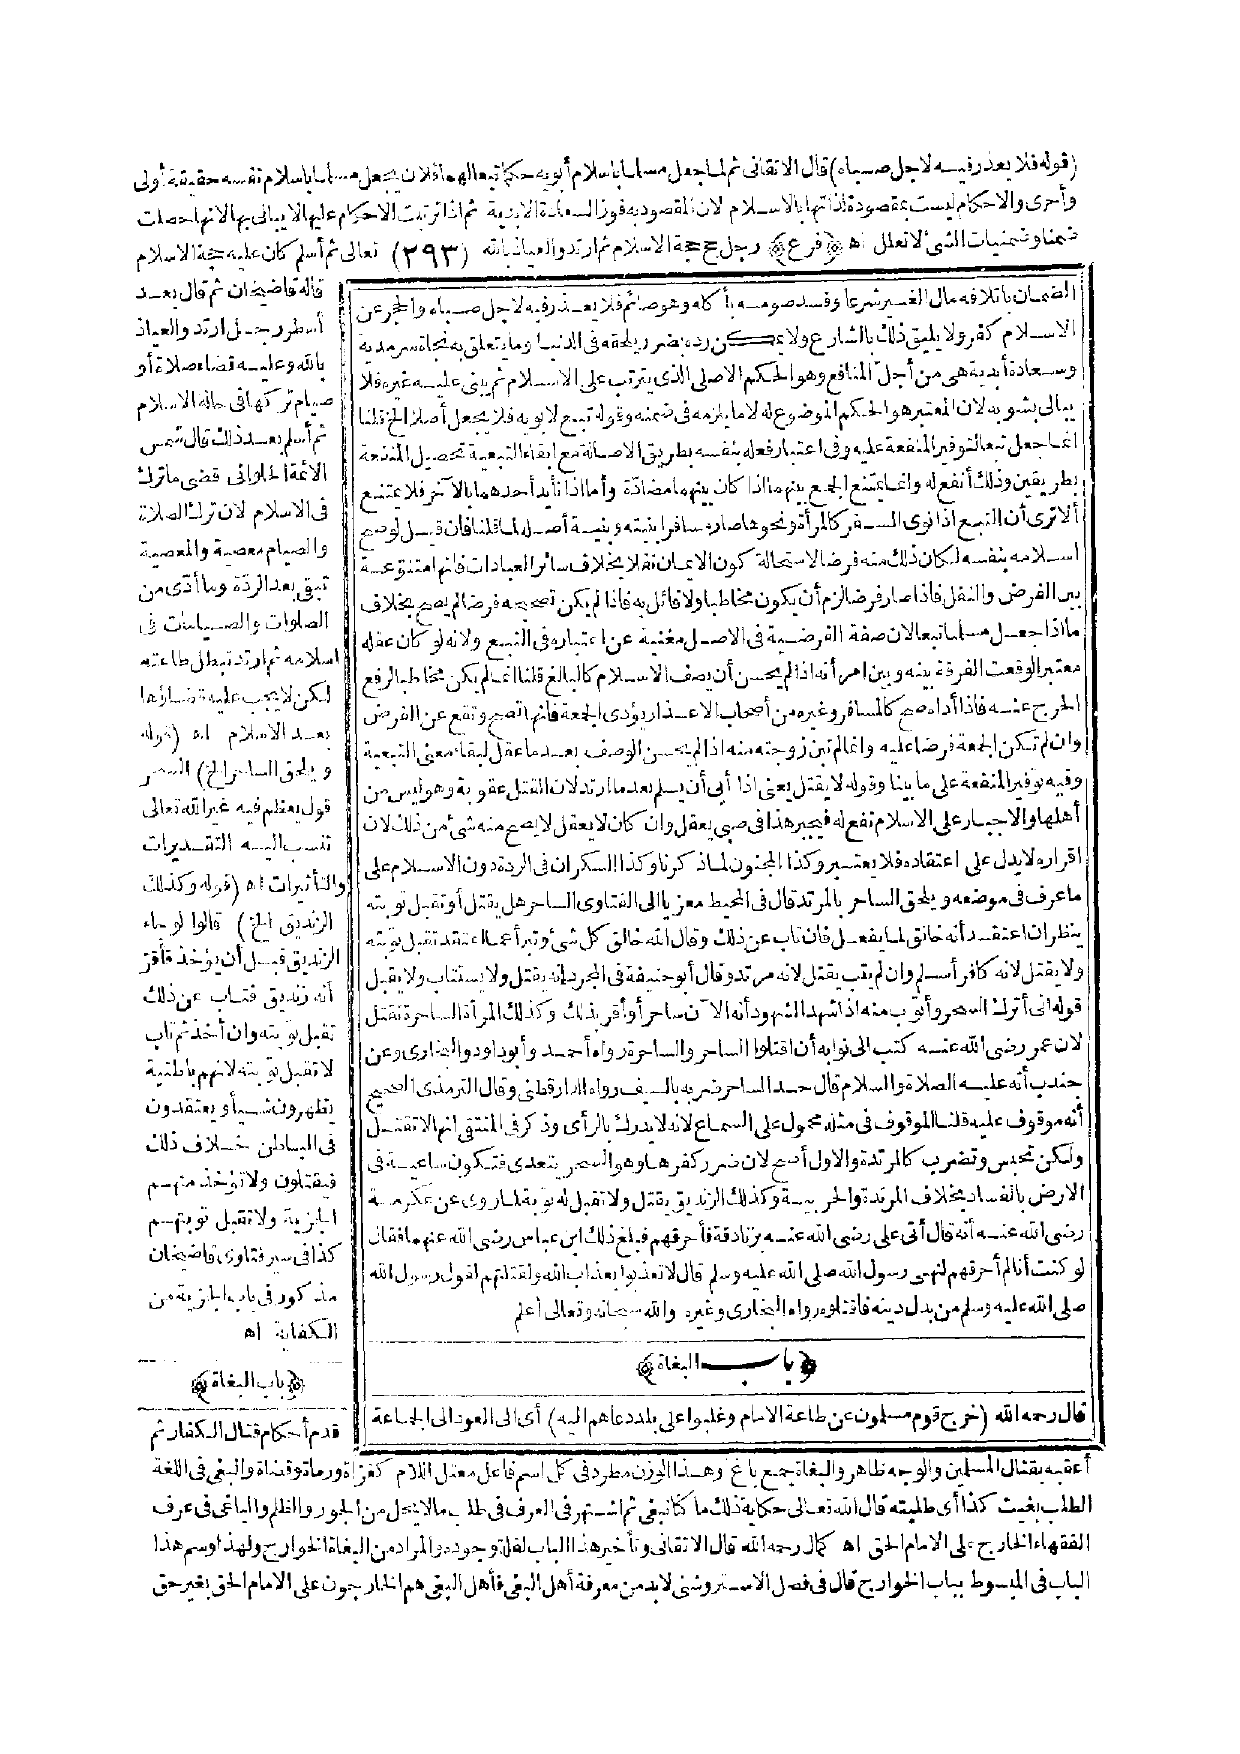 (قوله فلا يعذر فيه لاجل صباه) قال الاتقانى ثم لما جعل مسلما باسلام أبويه حكما تبعا لهما فلان يجعل مسلما باسلام نفسه حقيقة أولى
وأحرى والاحكام ليست بمقصودة لذاتها بالاسلام لان المقصود به فوز السعادة الابدية ثم اذا ترتبت الاحكام عليها لا يبالى بها لانها حصلت
ضمنا وضمنيات الشئ لا تعلل اه ﴿فرع﴾ رجل حج حجة الاسلام ثم ارتد والعياذ بالله (٢٩٣) تعالى ثم أسلم كان عليه حجة الاسلام
قاله قاضيخان ثم قال بعد
أسطر رجل ارتد والعياذ
بالله وعليه قضاء صلاة أو
صيام تركها فى حالة الاسلام
ثم أسلم بعد ذلك قال شمس
الائمة الحلوانى قضى ما ترك
فى الاسلام لان ترك الصلاة
والصيام معصية والمعصية
تبقى بعد الردة وما أدى من
الصلوات والصيامات فى
اسلامه ثم ارتد تبطل طاعته
لكن لا يجب عليه قضاؤها
بعد الاسلام اه (قوله
ويلحق الساحر الخ) السحر
قول يعظم فيه غير الله تعالى
تنسب اليه التقديرات
والتأثيرات اه (قوله وكذلك
الزنديق الخ) قالوا لو جاء
الزنديق قبل أن يؤخذ فأقر
أنه زنديق فتاب عن ذلك
تقبل توبته وان أخذ ثم تاب
لا تقبل توبته لانهم باطنية
يظهرون شيأ ويعتقدون
فى الباطن خلاف ذلك
فيقتلون ولا تؤخذ منهم
الجزية ولا تقبل توبتهم
كذا فى سير فتاوى قاضيخان
مذكور فى باب الجزية من
الكفاية اه
﴿باب البغاة﴾
قدم أحكام قتال الكفار ثم
الضمان باتلافه مال الغير شرعا وفسد صومه بأكله وهو صائم فلا يعذر فيه لاجل صباه والحجر عن
الاسلام كفر ولا يليق ذلك بالشارع ولا يمكن رده بضرر يلحقه فى الدنيا وما يتعلق به نجاة سرمدية
وسعادة أبدية هى من أجل المنافع وهو الحكم الاصلى الذى يترتب على الاسلام ثم يبنى عليه غيره فلا
يبالى بشوبه لان المعتبر هو الحكم الموضوع له لا ما يلزمه فى ضمنه وقوله تبع لابويه فلا يجعل أصلا الخ قلنا
انما جعل تبعا لتوفير المنفعة عليه وفى اعتبار فعله بنفسه بطريق الاصالة مع ابقاء التبعية تحصيل المنفعة
بطريقين وذلك أنفع له وانما يمتنع الجمع بينهما اذا كان بينهما مضادة وأما اذا تأيد أحدهما بالآخر فلا يمتنع
ألا ترى أن التبع اذا نوى السفر كالمرأة ونحوها صار مسافرا بنيته وبنية أصله لما قلنا فان قيل لو صح
اسلامه بنفسه لكان ذلك منه فرضا لاستحالة كون الايمان نفلا بخلاف سائر العبادات فانها متنوعة
بين الفرض والنفل فاذا صار فرضا لزم أن يكون مخاطبا ولا قائل به فاذا لم يكن تصحيحه فرضا لم يصح بخلاف
ما اذا جعل مسلما تبعا لان صفة الفرضية فى الاصل مغنية عن اعتباره فى التبع ولانه لو كان عقله
معتبرا لوقعت الفرقة بينه وبين امرأته اذا لم يحسن أن يصف الاسلام كالبالغ قلنا انما لم يكن مخاطبا لرفع
الحرج عنه فاذا أداه صح كالمسافر وغيره من أصحاب الاعذار يؤدى الجمعة فانها تصح وتقع عن الفرض
وان لم تكن الجمعة فرضا عليه وانما لم تبن زوجته منه اذا لم يحسن الوصف بعد ما عقل لبقاء معنى التبعية
وفيه توفير المنفعة على ما بينا وقوله لا يقتل يعنى اذا أبى أن يسلم بعد ما ارتد لان القتل عقوبة وهو ليس من
أهلها والاجبار على الاسلام نفع له فيجبر هذا فى صبى يعقل وان كان لا يعقل لا يصح منه شئ من ذلك لان
اقراره لا يدل على اعتقاده فلا يعتبر وكذا المجنون لما ذكرنا وكذا السكران فى الردة دون الاسلام على
ما عرف فى موضعه ويلحق الساحر بالمرتد قال فى المحيط معزيا الى الفتاوى الساحر هل يقتل أو تقبل توبته
ينظر ان اعتقد أنه خالق لما يفعل فان تاب عن ذلك وقال الله خالق كل شئ وتبرأ عما اعتقد تقبل توبته
ولا يقتل لانه كافر أسلم وان لم يتب يقتل لانه مرتد وقال أبو حنيفة فى المجرد انه يقتل ولا يستتاب ولا يقبل
قوله انى أترك السحر وأتوب منه اذا شهد الشهود أنه الآن ساحر أو أقر بذلك وكذلك المرأة الساحرة تقتل
لان عمر رضى الله عنه كتب الى نوابه أن اقتلوا الساحر والساحرة رواه أحمد وأبو داود والبخارى وعن
جندب أنه عليه الصلاة والسلام قال حد الساحر ضربه بالسيف رواه الدارقطنى وقال الترمذى الصحيح
أنه موقوف عليه قلنا الموقوف فى مثله محمول على السماع لانه لا يدرك بالرأى وذكر فى المنتقى انها لا تقتل
ولكن تحبس وتضرب كالمرتدة والاول أصح لان ضرر كفرها وهو السحر يتعدى فتكون ساعية فى
الارض بالفساد بخلاف المرتدة والحربية وكذلك الزنديق يقتل ولا تقبل له توبة لما روى عن عكرمة
رضى الله عنه أنه قال أتى على رضى الله عنه بزنادقة فأحرقهم فبلغ ذلك ابن عباس رضى الله عنهما فقال
لو كنت أنا لم أحرقهم لنهى رسول الله صلى الله عليه وسلم قال لا تعذبوا بعذاب الله ولقتلتهم لقول رسول الله
صلى الله عليه وسلم من بدل دينه فاقتلوه رواه البخارى وغيره والله سبحانه وتعالى أعلم
﴿باب البغاة﴾
قال رحمه الله (خرج قوم مسلمون عن طاعة الامام وغلبوا على بلد دعاهم اليه) أى الى العود الى الجماعة
أعقبه بقتال المسلمين والوجه ظاهر والبغاة جمع باغ وهذا الوزن مطرد فى كل اسم فاعل معتل اللام كغزاة ورماة وقضاة والبغى فى اللغة
الطلب بغيت كذا أى طلبته قال الله تعالى حكاية ذلك ما كنا نبغى ثم اشتهر فى العرف فى طلب ما لا يحل من الجور والظلم والباغى فى عرف
الفقهاء الخارج على الامام الحق اه كمال رحمه الله قال الاتقانى وتأخير هذا الباب لقلة وجوده والمراد من البغاة الخوارج ولهذا وسم هذا
الباب فى المبسوط بباب الخوارج قال فى فصل الاستروشنى لابد من معرفة أهل البغى فأهل البغى هم الخارجون على الامام الحق بغير حق